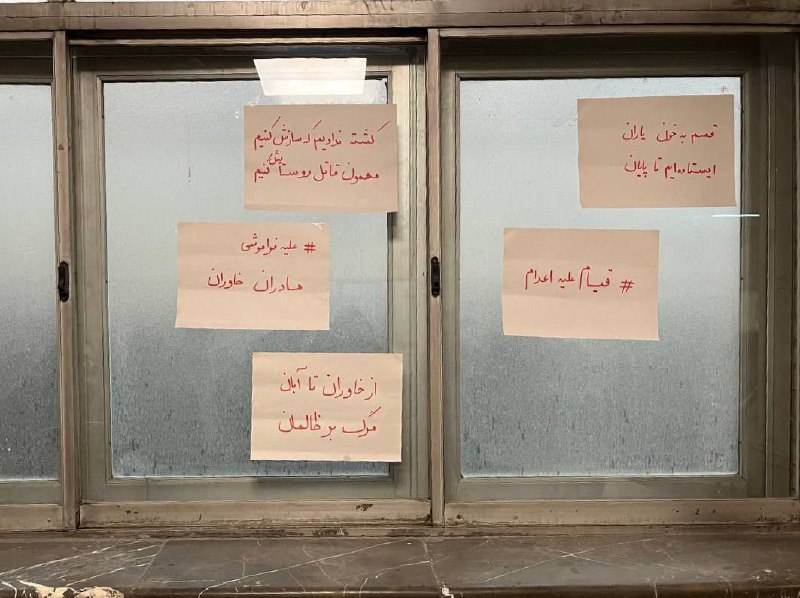 قسم به خون یاران
ایستاده‌ایم تا پایان
# قیام علیه اعدام
کشته ندادیم که سازش کنیم
همون قاتل رو ستایش کنیم
# علیه فراموشی
مادران خاوران
از خاوران تا آبان
مرگ بر ظالمان